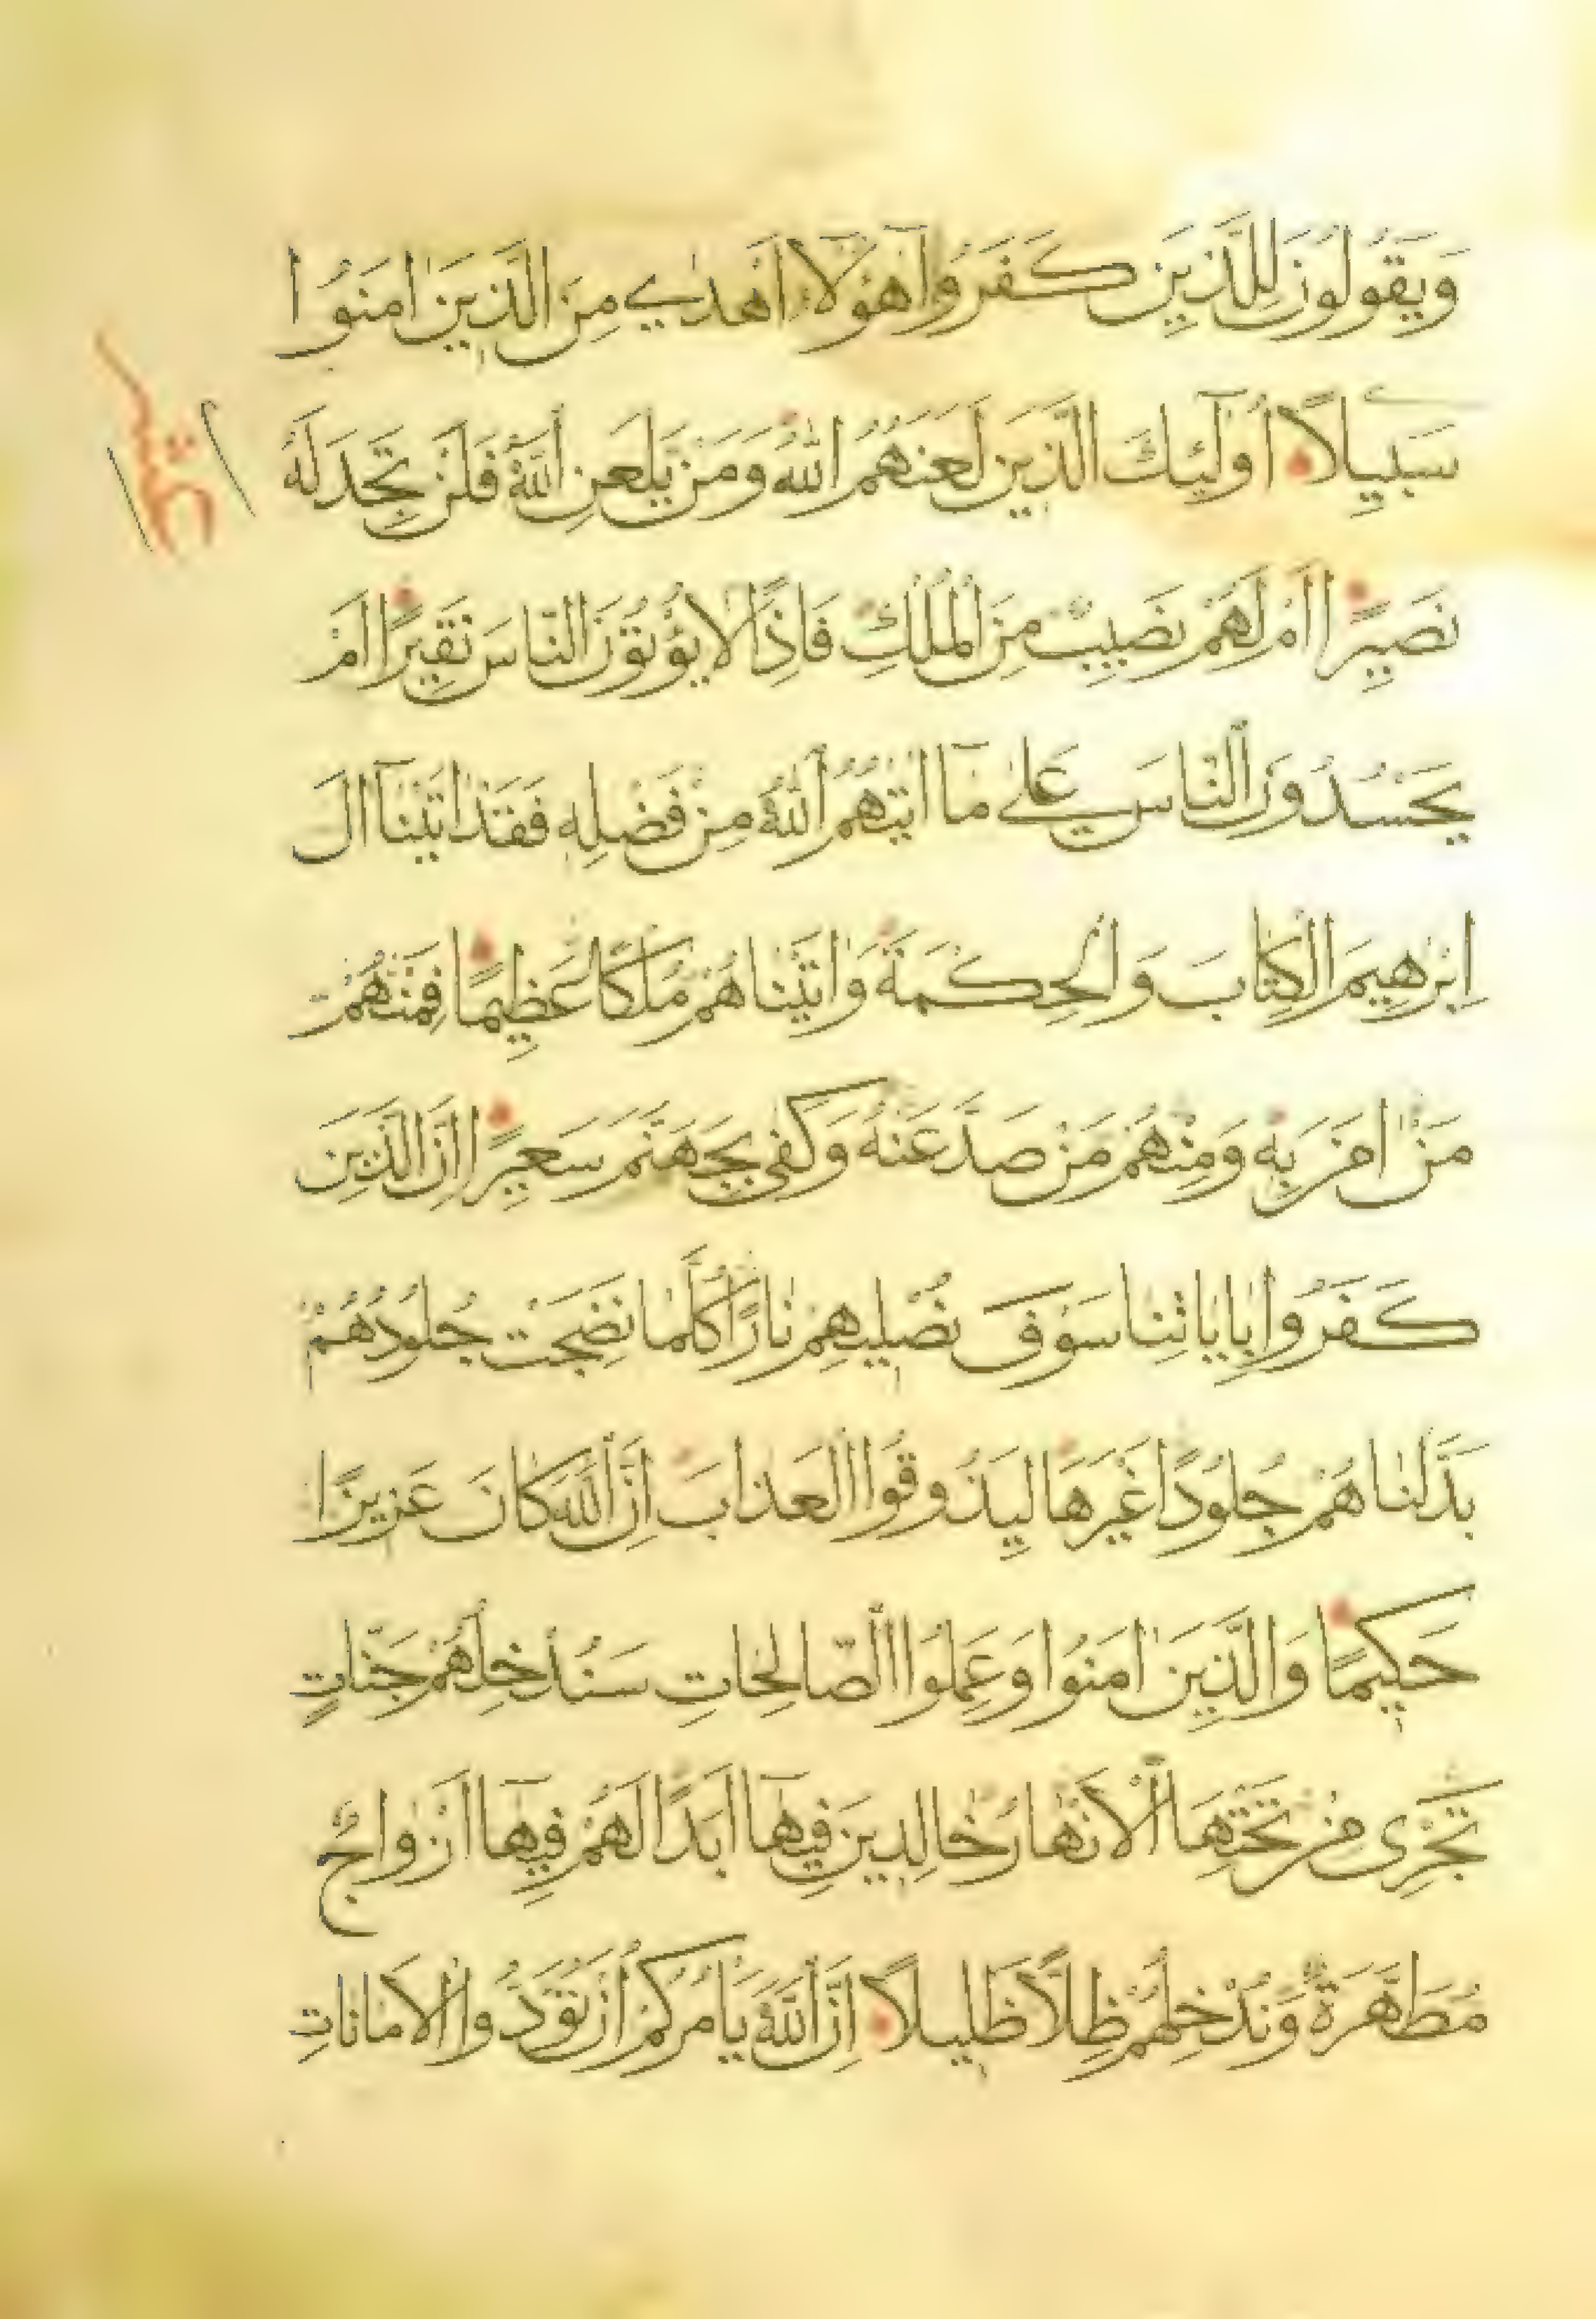 وَيَقُولُونَ لِلَّذِينَ كَفَرُوا هٰؤُلَاءِ أَهْدٰي مِنَ الَّذِينَ اٰمَنُوا
سَبِيلًا أُولٰئِكَ الَّذِينَ لَعَنَهُمُ اللّٰهُ وَمَنْ يَلْعَنِ اللّٰهُ فَلَنْ تَجِدَ لَهُ
نَصِيرًا أَمْ لَهُمْ نَصِيبٌ مِنَ الْمُلْكِ فَإِذًا لَا يُؤْتُونَ النَّاسَ نَقِيرًا أَمْ
يَحْسُدُونَ النَّاسَ عَلٰى مَا اٰتٰيهُمُ اللّٰهُ مِنْ فَضْلِهِ فَقَدْ اٰتَيْنَا اٰلَ
اِبْرٰهِيمَ الْكِتَابَ وَالْحِكْمَةَ وَاٰتَيْنَاهُمْ مُلْكًا عَظِيمًا فَمِنْهُمْ
مَنْ اٰمَنَ بِهِ وَمِنْهُمْ مَنْ صَدَّ عَنْهُ وَكَفٰى بِجَهَنَّمَ سَعِيرًا اِنَّ الَّذِينَ
كَفَرُوا بِاٰيَاتِنَا سَوْفَ نُصْلِيهِمْ نَارًا كُلَّمَا نَضِجَتْ جُلُودُهُمْ
بَدَّلْنَاهُمْ جُلُودًا غَيْرَهَا لِيَذُوقُوا الْعَذَابَ اِنَّ اللّٰهَ كَانَ عَزِيزًا
حَكِيمًا وَالَّذِينَ اٰمَنُوا وَعَمِلُوا الصَّالِحَاتِ سَنُدْخِلُهُمْ جَنَّاتٍ
تَجْرِى مِنْ تَحْتِهَا الْأَنْهَارُ خَالِدِينَ فِيهَا أَبَدًا لَهُمْ فِيهَا أَزْوَاجٌ
مُطَهَّرَةٌ وَنُدْخِلُهُمْ ظِلًّا ظَلِيلًا اِنَّ اللّٰهَ يَأْمُرُكُمْ أَنْ تُؤَدُّوا الْأَمَانَاتِ